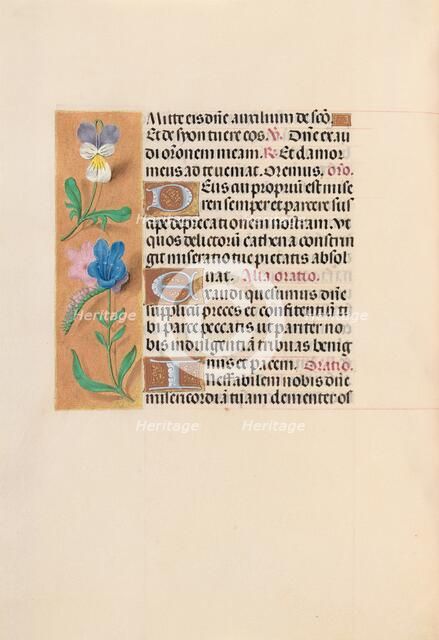 Mitte eis dñe auxilium de scõ.
Et de syon tuere eos. V. Dñe exau
di orõnem meam. R. Et clamor
meus ad te veniat. Oremus. orõ.
Deus cui proprium est mise
reri semper et parcere sus
cipe deprecationem nostram. Vt
quos delictorum cathena constrin
git miseratio tue pietatis absol
uat. Alia oratio.
Exaudi quesumus dñe
supplicum preces et confitentium ti
bi parce peccatis ut pariter no
bis indulgentiam tribuas benig
nus et pacem. Oratio.
Ineffabilem nobis dñe
misericordiã tuam clementer os
Heritage Heritage Heritage
Heritage Heritage